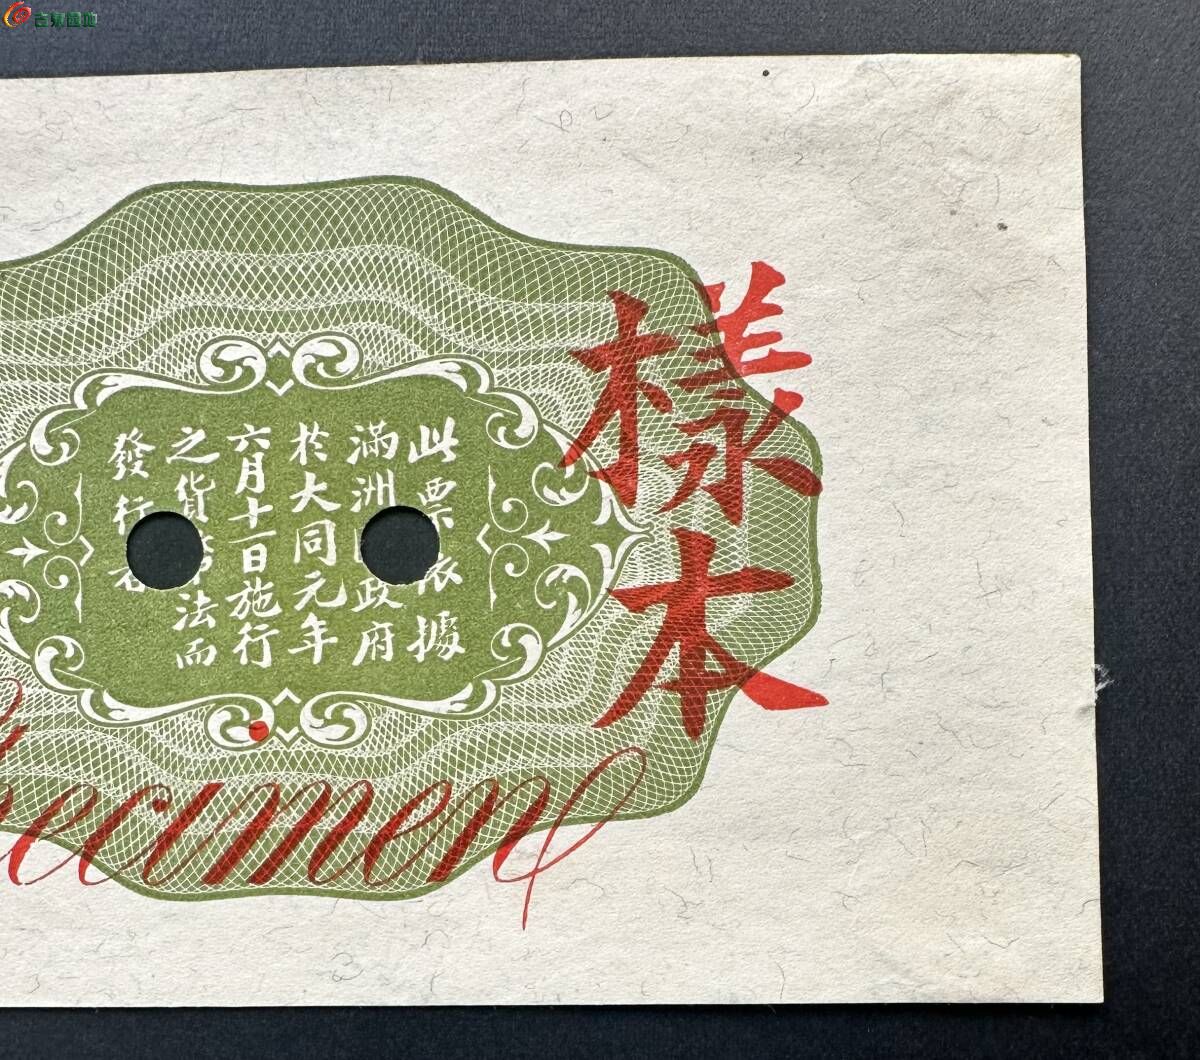 古泉園地
此票依據
滿洲 政府
於大同元年
六月十一日施行
之貨 法而
發行
樣本
Specimen